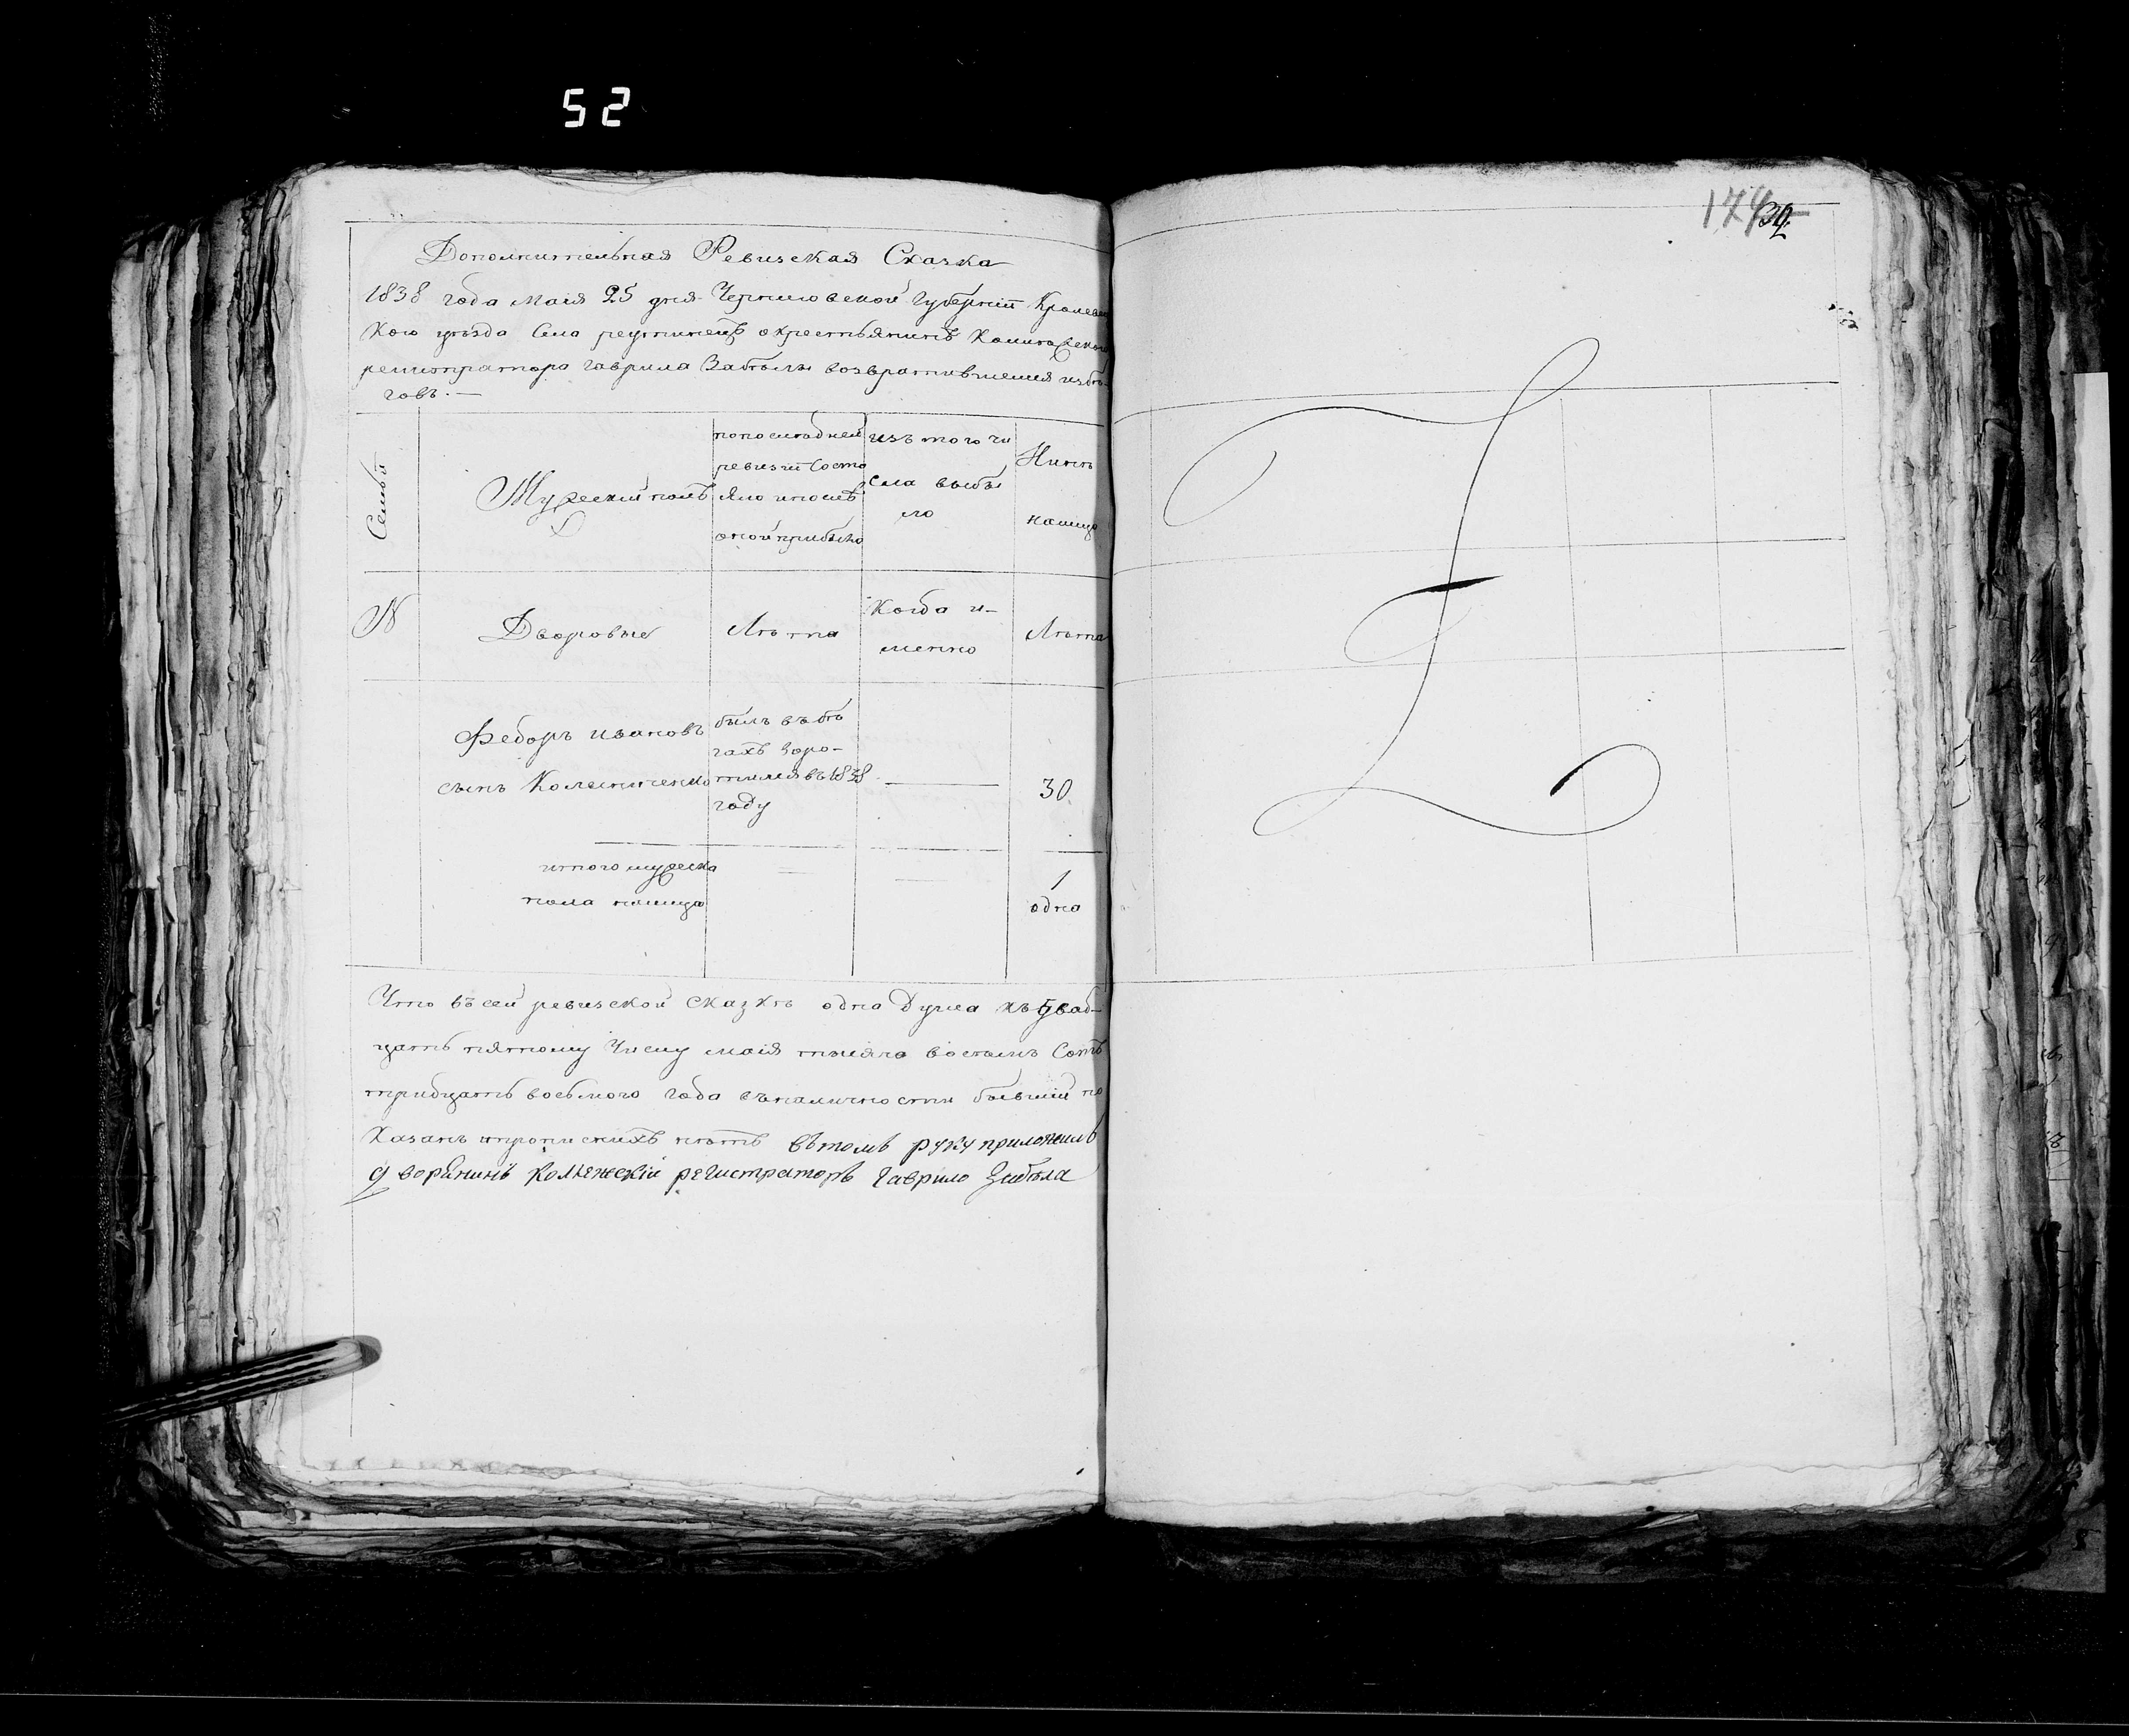 52
174
Дополнительная Ревизская Сказка
1838 года маія 25 дня Черниговской Губерніи Кролевец
кого уѣзда Села реутинецъ окрестьянинѣ Колежского
регистратора гаврила Забѣлы возвратившемся избѣ
говъ. —
Семьи
Мужескій полъ
попоследней
ревизіи Состо
яло ипослѣ
оной прибыло
изъ того чи
сла выбы
ло
Нынѣ
налицо
N
Дворовые
Лѣта
Когда и-
менно
Лѣта
Федоръ ивановъ
сынъ
былъ въ бѣ
гахъ воро-
тился въ 1838
году
—
30
итого мужеска
пола налицо
—
—
1
одна
Что въ сей ревизской сказкѣ одна Душа къ двад-
цать пятому Числу маія тысяча восемь Сотъ
тридцать восьмого года въналичности бывший по
казанъ ипрописнихъ нѣтъ вътомъ руку приложилъ
дворянинъ колежескій регистраторъ гаврило Забѣла